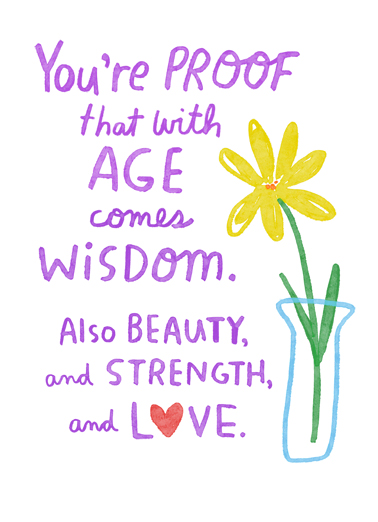 You're PROOF
that with
AGE
comes
WiSDOM.
Also BEAUTY,
and STRENGTH,
and LOVE.